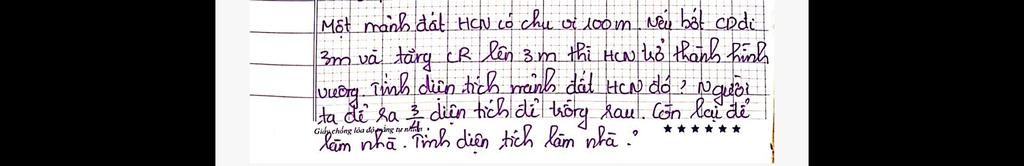 Một mảnh đất HCN có chu vi 100m. Nếu bớt CD đi
3m và tăng CR lên 3m thì HCN trở thành hình
vuông. Tính diện tích mảnh đất HCN đó? Người
ta để ra 3/4 diện tích để trồng rau. Còn lại để
Giấy chống lóa độ trắng tự nhiên
làm nhà. Tính diện tích làm nhà?